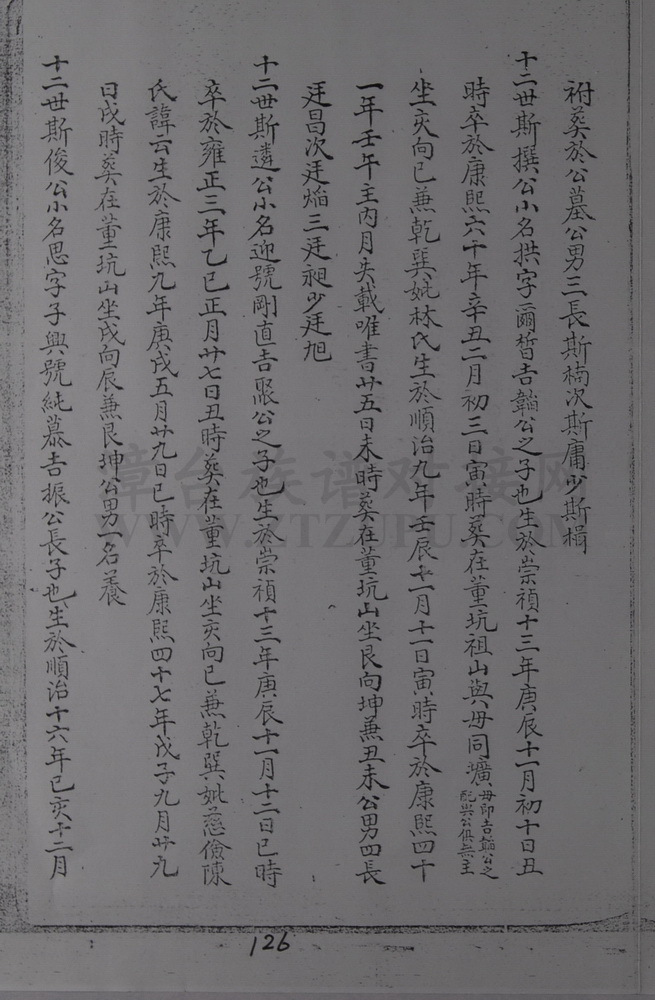 祔葬於公墓公男三長斯楠次斯庸少斯楫
十二世斯撰公小名拱字爾晳吉韜公之子也生於崇禎十三年庚辰十一月初十日丑
時卒於康熙六十年辛丑二月初三日寅時葬在董坑祖山與母同壙母即吉韜公之配與公俱無主
坐亥向巳兼乾巽妣林氏生於順治九年壬辰十一月十一日寅時卒於康熙四十
一年壬午主內月失載唯書廿五日未時葬在董坑山坐艮向坤兼丑未公男四長
廷昌次廷焰三廷昶少廷旭
十二世斯遴公小名迎號剛直吉聚公之子也生於崇禎十三年庚辰十一月十二日巳時
卒於雍正三年乙巳正月廿七日丑時葬在董坑山坐亥向巳兼乾巽妣慈儉陳
氏諱云生於康熙九年庚戌五月廿九日巳時卒於康熙四十七年戊子九月廿九
日戌時葬在董坑山坐戌向辰兼艮坤公男一名養
十二世斯俊公小名思字子興號純慕吉振公長子也生於順治十六年己亥十二月
126
章台族谱对接网
WWW.ZTZUPU.COM